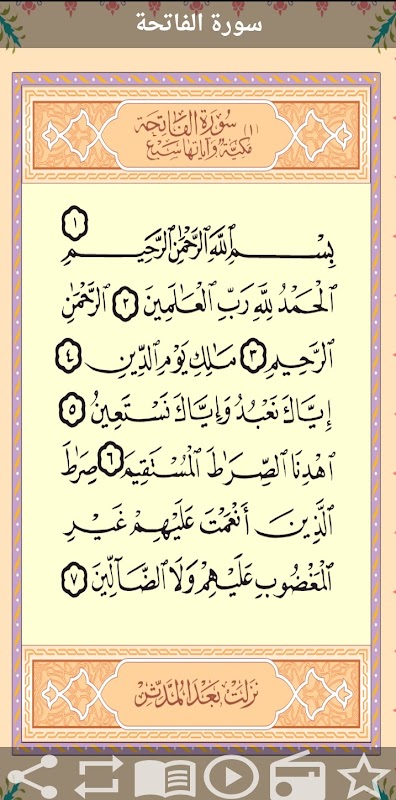 سورة الفاتحة
سُورَةُ الفَاتِحَة (١)
مكيّة وآياتها سَبْع
بِسْمِ ٱللَّهِ ٱلرَّحْمَٰنِ ٱلرَّحِيمِ ١
ٱلْحَمْدُ لِلَّهِ رَبِّ ٱلْعَٰلَمِينَ ٢ ٱلرَّحْمَٰنِ
ٱلرَّحِيمِ ٣ مَٰلِكِ يَوْمِ ٱلدِّينِ ٤
إِيَّاكَ نَعْبُدُ وَإِيَّاكَ نَسْتَعِينُ ٥
ٱهْدِنَا ٱلصِّرَٰطَ ٱلْمُسْتَقِيمَ ٦ صِرَٰطَ
ٱلَّذِينَ أَنْعَمْتَ عَلَيْهِمْ غَيْرِ
ٱلْمَغْضُوبِ عَلَيْهِمْ وَلَا ٱلضَّآلِّينَ ٧
نزلت بَعْدَ المدَّثر